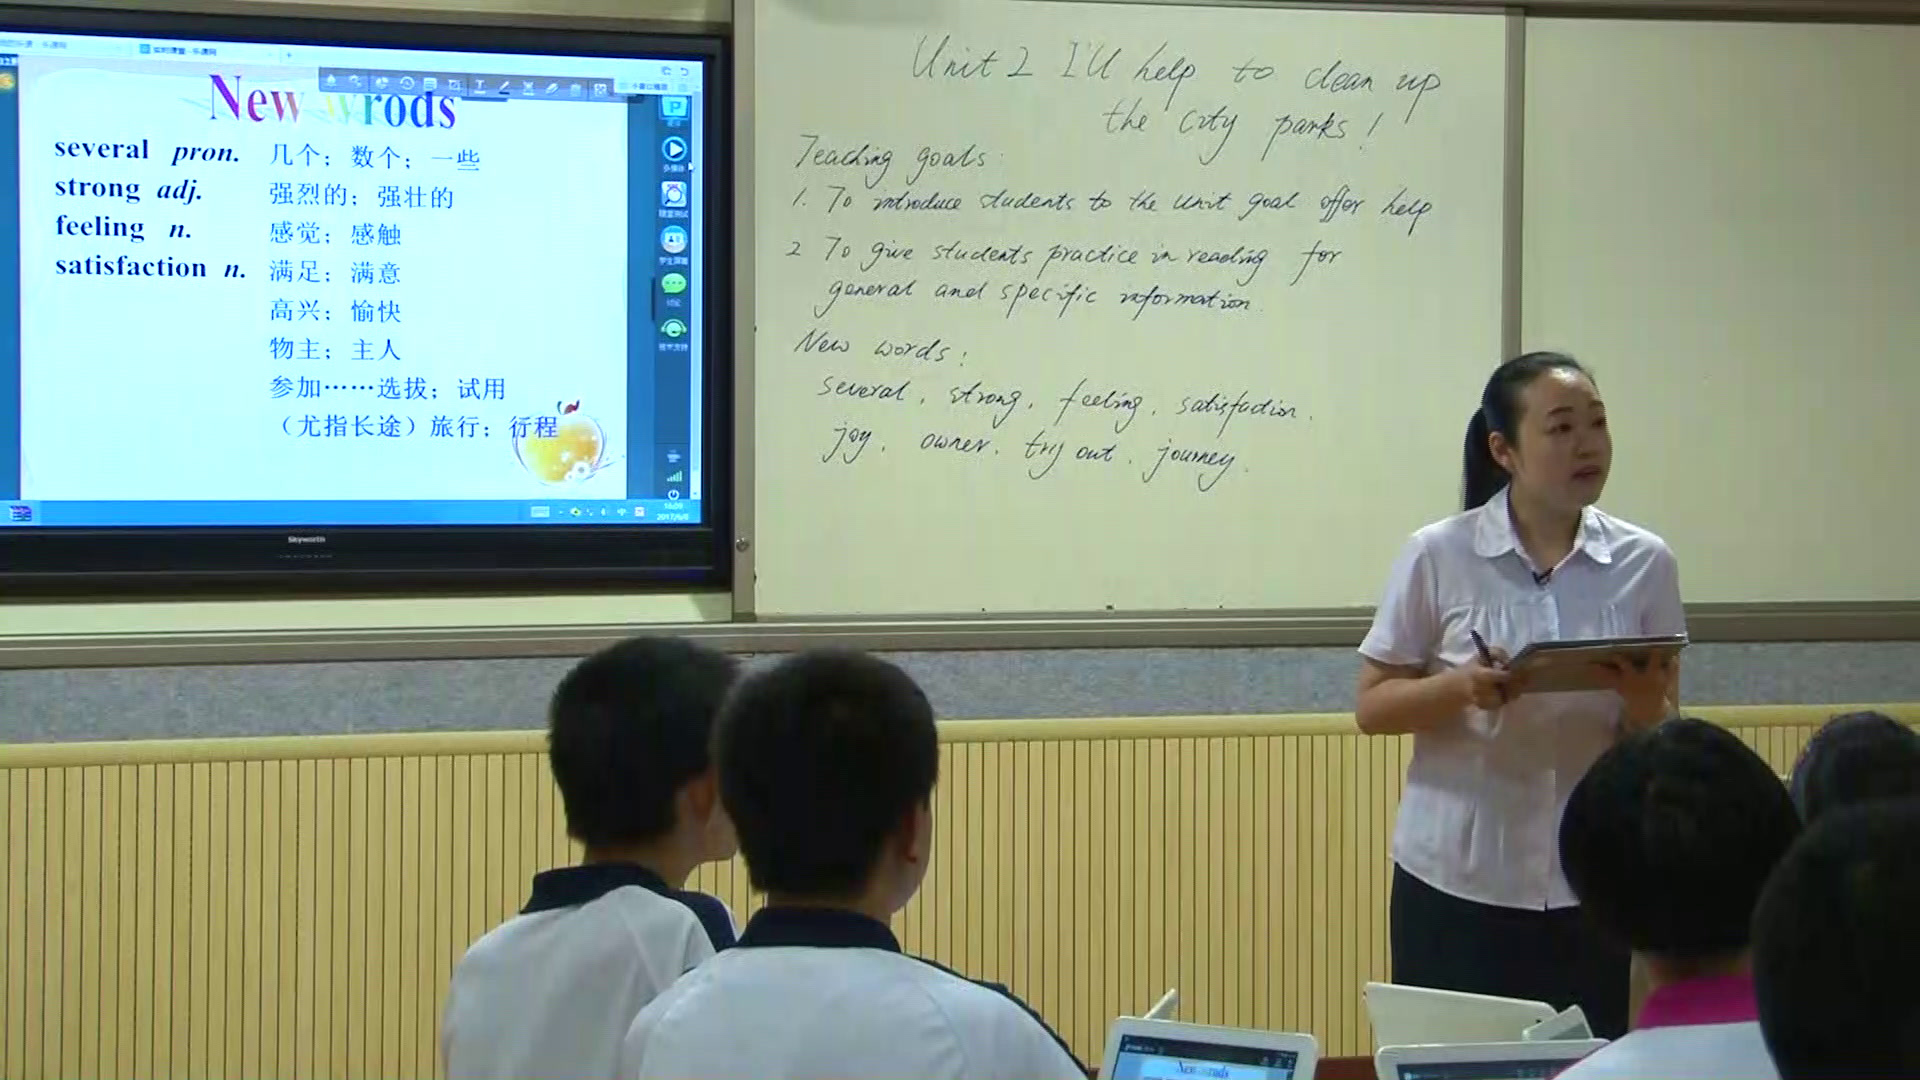 New wrods
several pron. 几个；数个；一些
strong adj. 强烈的；强壮的
feeling n. 感觉；感触
satisfaction n. 满足；满意
高兴；愉快
物主；主人
参加……选拔；试用
（尤指长途）旅行；行程
Skyworth
Unit 2 I'll help to clean up
the city parks!
Teaching goals:
1. To introduce students to the unit goal offer help
2 To give students practice in reading for
general and specific information.
New words:
several, strong, feeling, satisfaction.
joy, owner, try out, journey.
New wrods